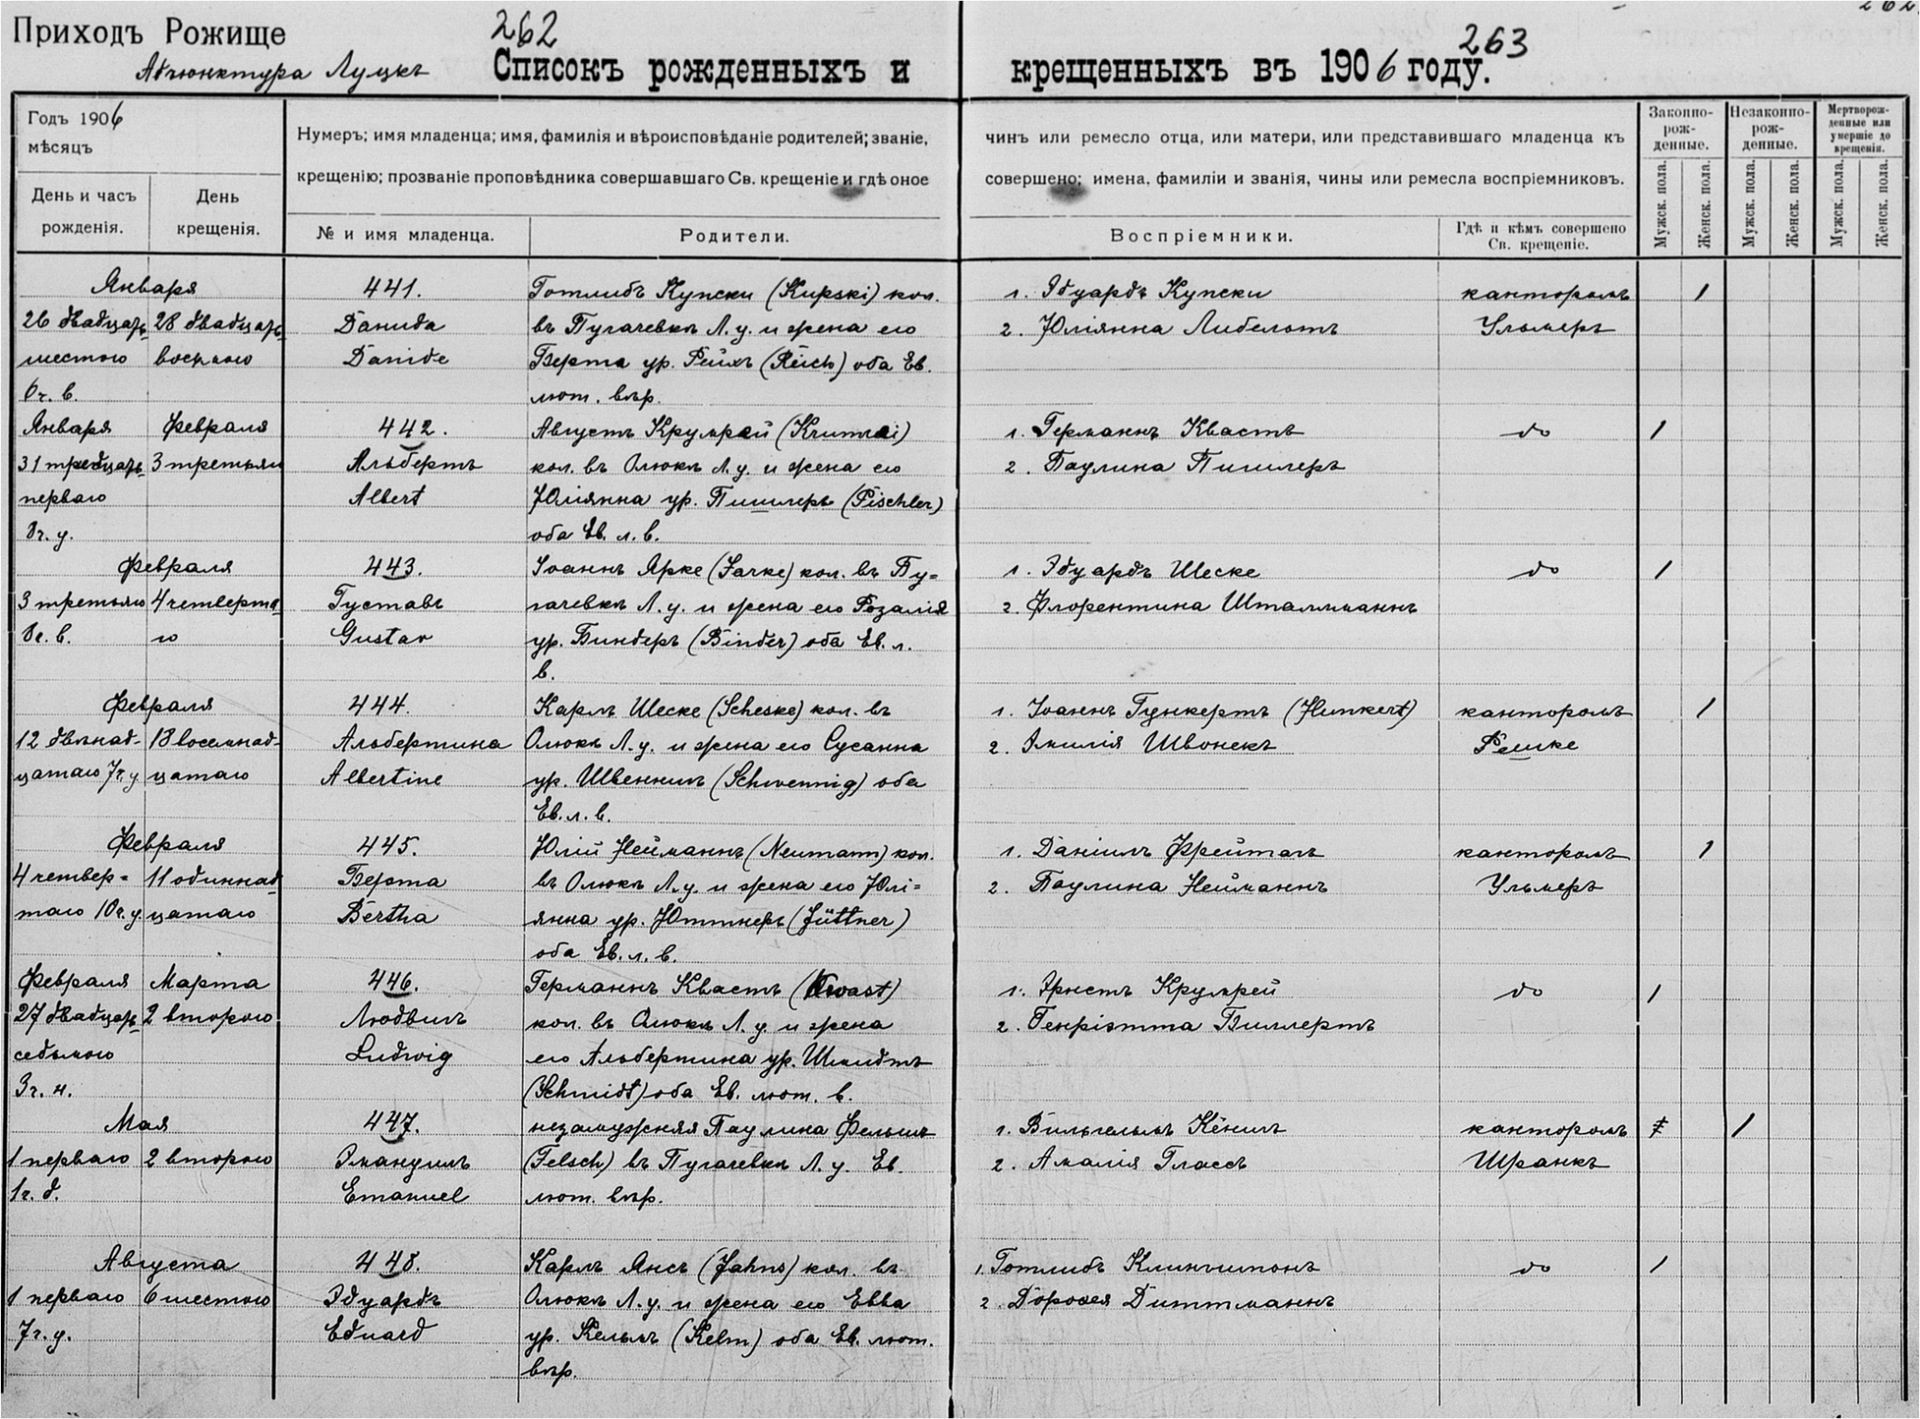 Приходъ Рожище
262
263
Адъюнктура Луцкъ
Списокъ рожденныхъ и
крещенныхъ въ 1906 году.
Годъ 1906
мѣсяцъ
День и часъ
рожденія.
День
крещенія.
Нумеръ; имя младенца; имя, фамилія и вѣроисповѣданіе родителей; званіе,
крещенію; прозваніе проповѣдника совершавшаго Св. крещеніе и гдѣ оное
№ и имя младенца.
Родители.
чинъ или ремесло отца, или матери, или представившаго младенца къ
совершено; имена, фамиліи и званія, чины или ремесла воспріемниковъ.
Воспріемники.
Гдѣ и кѣмъ совершено
Св. крещеніе.
Законно-
рож-
денные.
Незаконно-
рож-
денные.
Мертворож-
денные или
умершіе до
крещенія.
Мужск. пола.
Женск. пола.
Мужск. пола.
Женск. пола.
Мужск. пола.
Женск. пола.
Января
26 двадцать
шестого
6 ч. в.
28 двадцать
восьмого
441.
Данида
Danide
Готлибъ Купски (Kupski) кол.
въ Пугачевкѣ Л. у. и жена его
Берта ур. Рейхъ (Reich) оба Ев.
лют. вѣр.
1. Эдуардъ Купски
2. Юліянна Либелотъ
канторомъ
Ульмеръ
1
Января
31 тридцать
перваго
8 ч. у.
Февраля
3 третьяго
442.
Альбертъ
Albert
Августъ Крумрей (Krumrei)
кол. въ Олюкѣ Л. у. и жена его
Юліянна ур. Пишлеръ (Pischler)
оба Ев. л. в.
1. Германнъ Квастъ
2. Паулина Пишлеръ
до
1
Февраля
3 третьяго
8 ч. в.
4 четверта
го
443.
Густавъ
Gustav
Іоаннъ Ярке (Jarke) кол. въ Пу=
гачевкѣ Л. у. и жена его Розалія
ур. Биндеръ (Binder) оба Ев. л.
в.
1. Эдуардъ Шеске
2. Флорентина Штальманнъ
до
1
Февраля
12 двѣнад-
цатаго 7 ч. у
18 восемнад-
цатаго
444.
Альбертина
Albertine
Карлъ Шеске (Scheske) кол. въ
Олюкѣ Л. у. и жена его Сусанна
ур. Швеннигъ (Schwennig) оба
Ев. л. в.
1. Іоаннъ Гункертъ (Hunkert)
2. Эмилія Швонекъ
канторомъ
Решке
1
Февраля
4 четвер=
таго 10 ч. у.
11 одиннад
цатаго
445.
Берта
Bertha
Юлій Нейманнъ (Neumann) кол.
въ Олюкѣ Л. у. и жена его Юлі=
янна ур. Юттнеръ (Jüttner)
оба Ев. л. в.
1. Даніилъ Фрейтагъ
2. Паулина Нейманнъ
канторомъ
Ульмеръ
1
Февраля
27 двадцать
седьмого
3 ч. н.
Марта
2 второго
446.
Людвигъ
Ludwig
Германнъ Квастъ (Kwast)
кол. въ Олюкѣ Л. у. и жена
его Альбертина ур. Шмидтъ
(Schmidt) оба Ев. лют. в.
1. Эрнстъ Крумрей
2. Генріэтта Виллертъ
до
1
Мая
1 перваго
1 ч. д.
2 второго
447.
Эмануилъ
Emanuel
незамужняя Паулина Фельшъ
(Felsch) въ Пугачевкѣ Л. у. Ев.
лют. вѣр.
1. Вильгельмъ Кёнигъ
2. Амалія Глассъ
канторомъ
Шранкъ
1
Августа
1 перваго
7 ч. у.
6 шестого
448.
Эдуардъ
Eduard
Карлъ Янсъ (Jahns) кол. въ
Олюкѣ Л. у. и жена его Евва
ур. Кельмъ (Kelm) оба Ев. лют.
вѣр.
1. Готлибъ Клингшпонъ
2. Дороѳея Диттманнъ
до
1